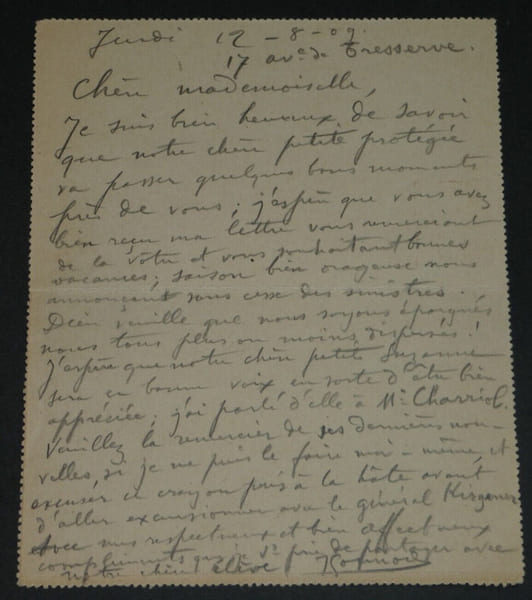 Jeudi 12 - 8 - 09.
17 ave de Tresserve.
Chère mademoiselle,
Je suis bien heureux de savoir
que notre chère petite protégée
va passer quelques bons moments
près de vous ; j'espère que vous avez
bien reçu ma lettre vous remerciant
de la vôtre et vous souhaitant bonnes
vacances ; saison bien orageuse nous
annonçant sans cesse des sinistres.
Dieu veuille que nous soyons épargnés
nous tous plus ou moins dispersés !
J'espère que notre chère petite Suzanne
sera en bonne voix en sorte d'être bien
appréciée ; j'ai parlé d'elle à Mr Charriol.
Veuillez la remercier de ses dernières nou-
velles, si je ne puis le faire moi-même, et
excuser ce crayon pris à la hâte avant
d'aller excursionner avec le général Kirgener
Avec mes respectueux et bien affectueux
compliments que je vs prie de partager avec
notre chère élève